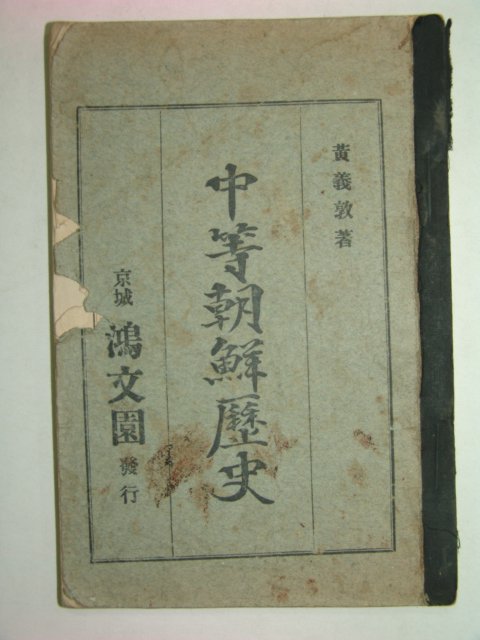 黃義敦著
中等朝鮮歷史
京城 鴻文園 發行